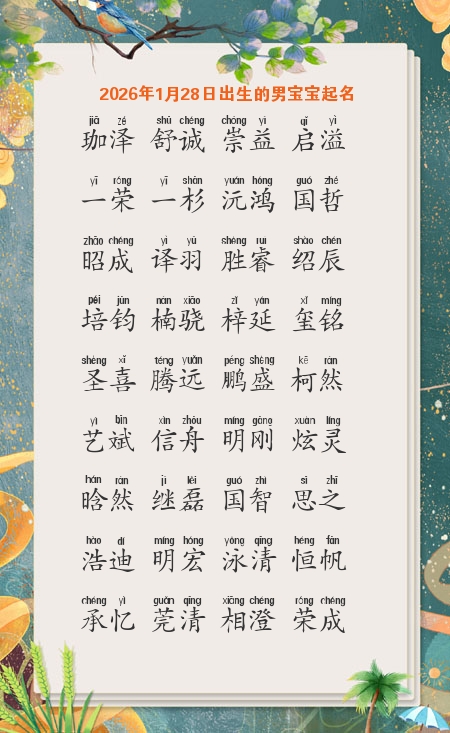 2026年1月28日出生的男宝宝起名
jiā zé shū chéng chóng yì qǐ yì
珈泽 舒诚 崇益 启溢
yī róng yī shān yuán hóng guó zhé
一荣 一杉 沅鸿 国哲
zhāo chéng yì yǔ shèng ruì shào chén
昭成 译羽 胜睿 绍辰
péi jūn nán xiāo zǐ yán xǐ míng
培钧 楠骁 梓延 玺铭
shèng xǐ téng yuǎn péng shèng kē rán
圣喜 腾远 鹏盛 柯然
yì bīn xìn zhōu míng gāng xuàn líng
艺斌 信舟 明刚 炫灵
hán rán jì lěi guó zhì sī zhī
晗然 继磊 国智 思之
hào dí míng hóng yǒng qīng héng fān
浩迪 明宏 泳清 恒帆
chéng yì guǎn qīng xiāng chéng róng chéng
承忆 莞清 相澄 荣成